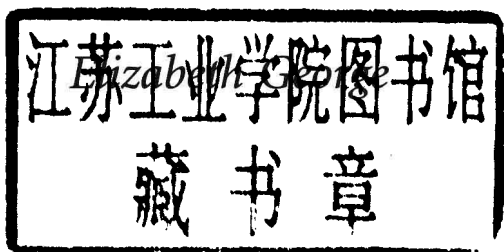 江苏工业学院图书馆
Elizabeth George
藏书章